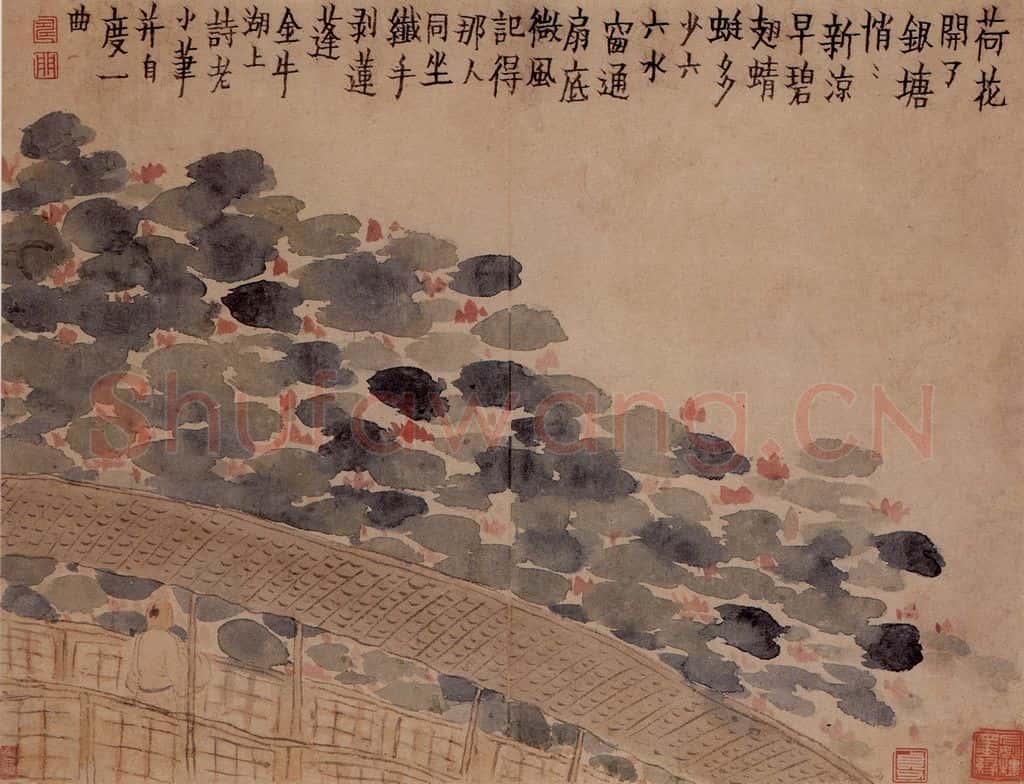 荷花
開了
銀塘
悄〻
新涼
早碧
翅蜻
蜓多
少六
六水
窗通
扇底
微風
記得
那人
同坐
纖手
剥蓮
蓬
金牛
湖上
詩老
小筆
并自
度一
曲
Shufawang.CN